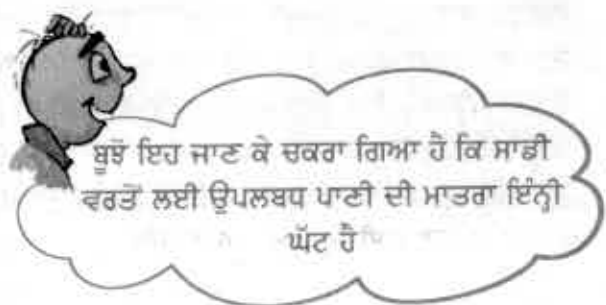 ਬੂਝੋ ਇਹ ਜਾਣ ਕੇ ਚਕਰਾ ਗਿਆ ਹੈ ਕਿ ਸਾਡੀ
ਵਰਤੋਂ ਲਈ ਉਪਲਬਧ ਪਾਣੀ ਦੀ ਮਾਤਰਾ ਇੰਨ੍ਹੀ
ਘੱਟ ਹੈ